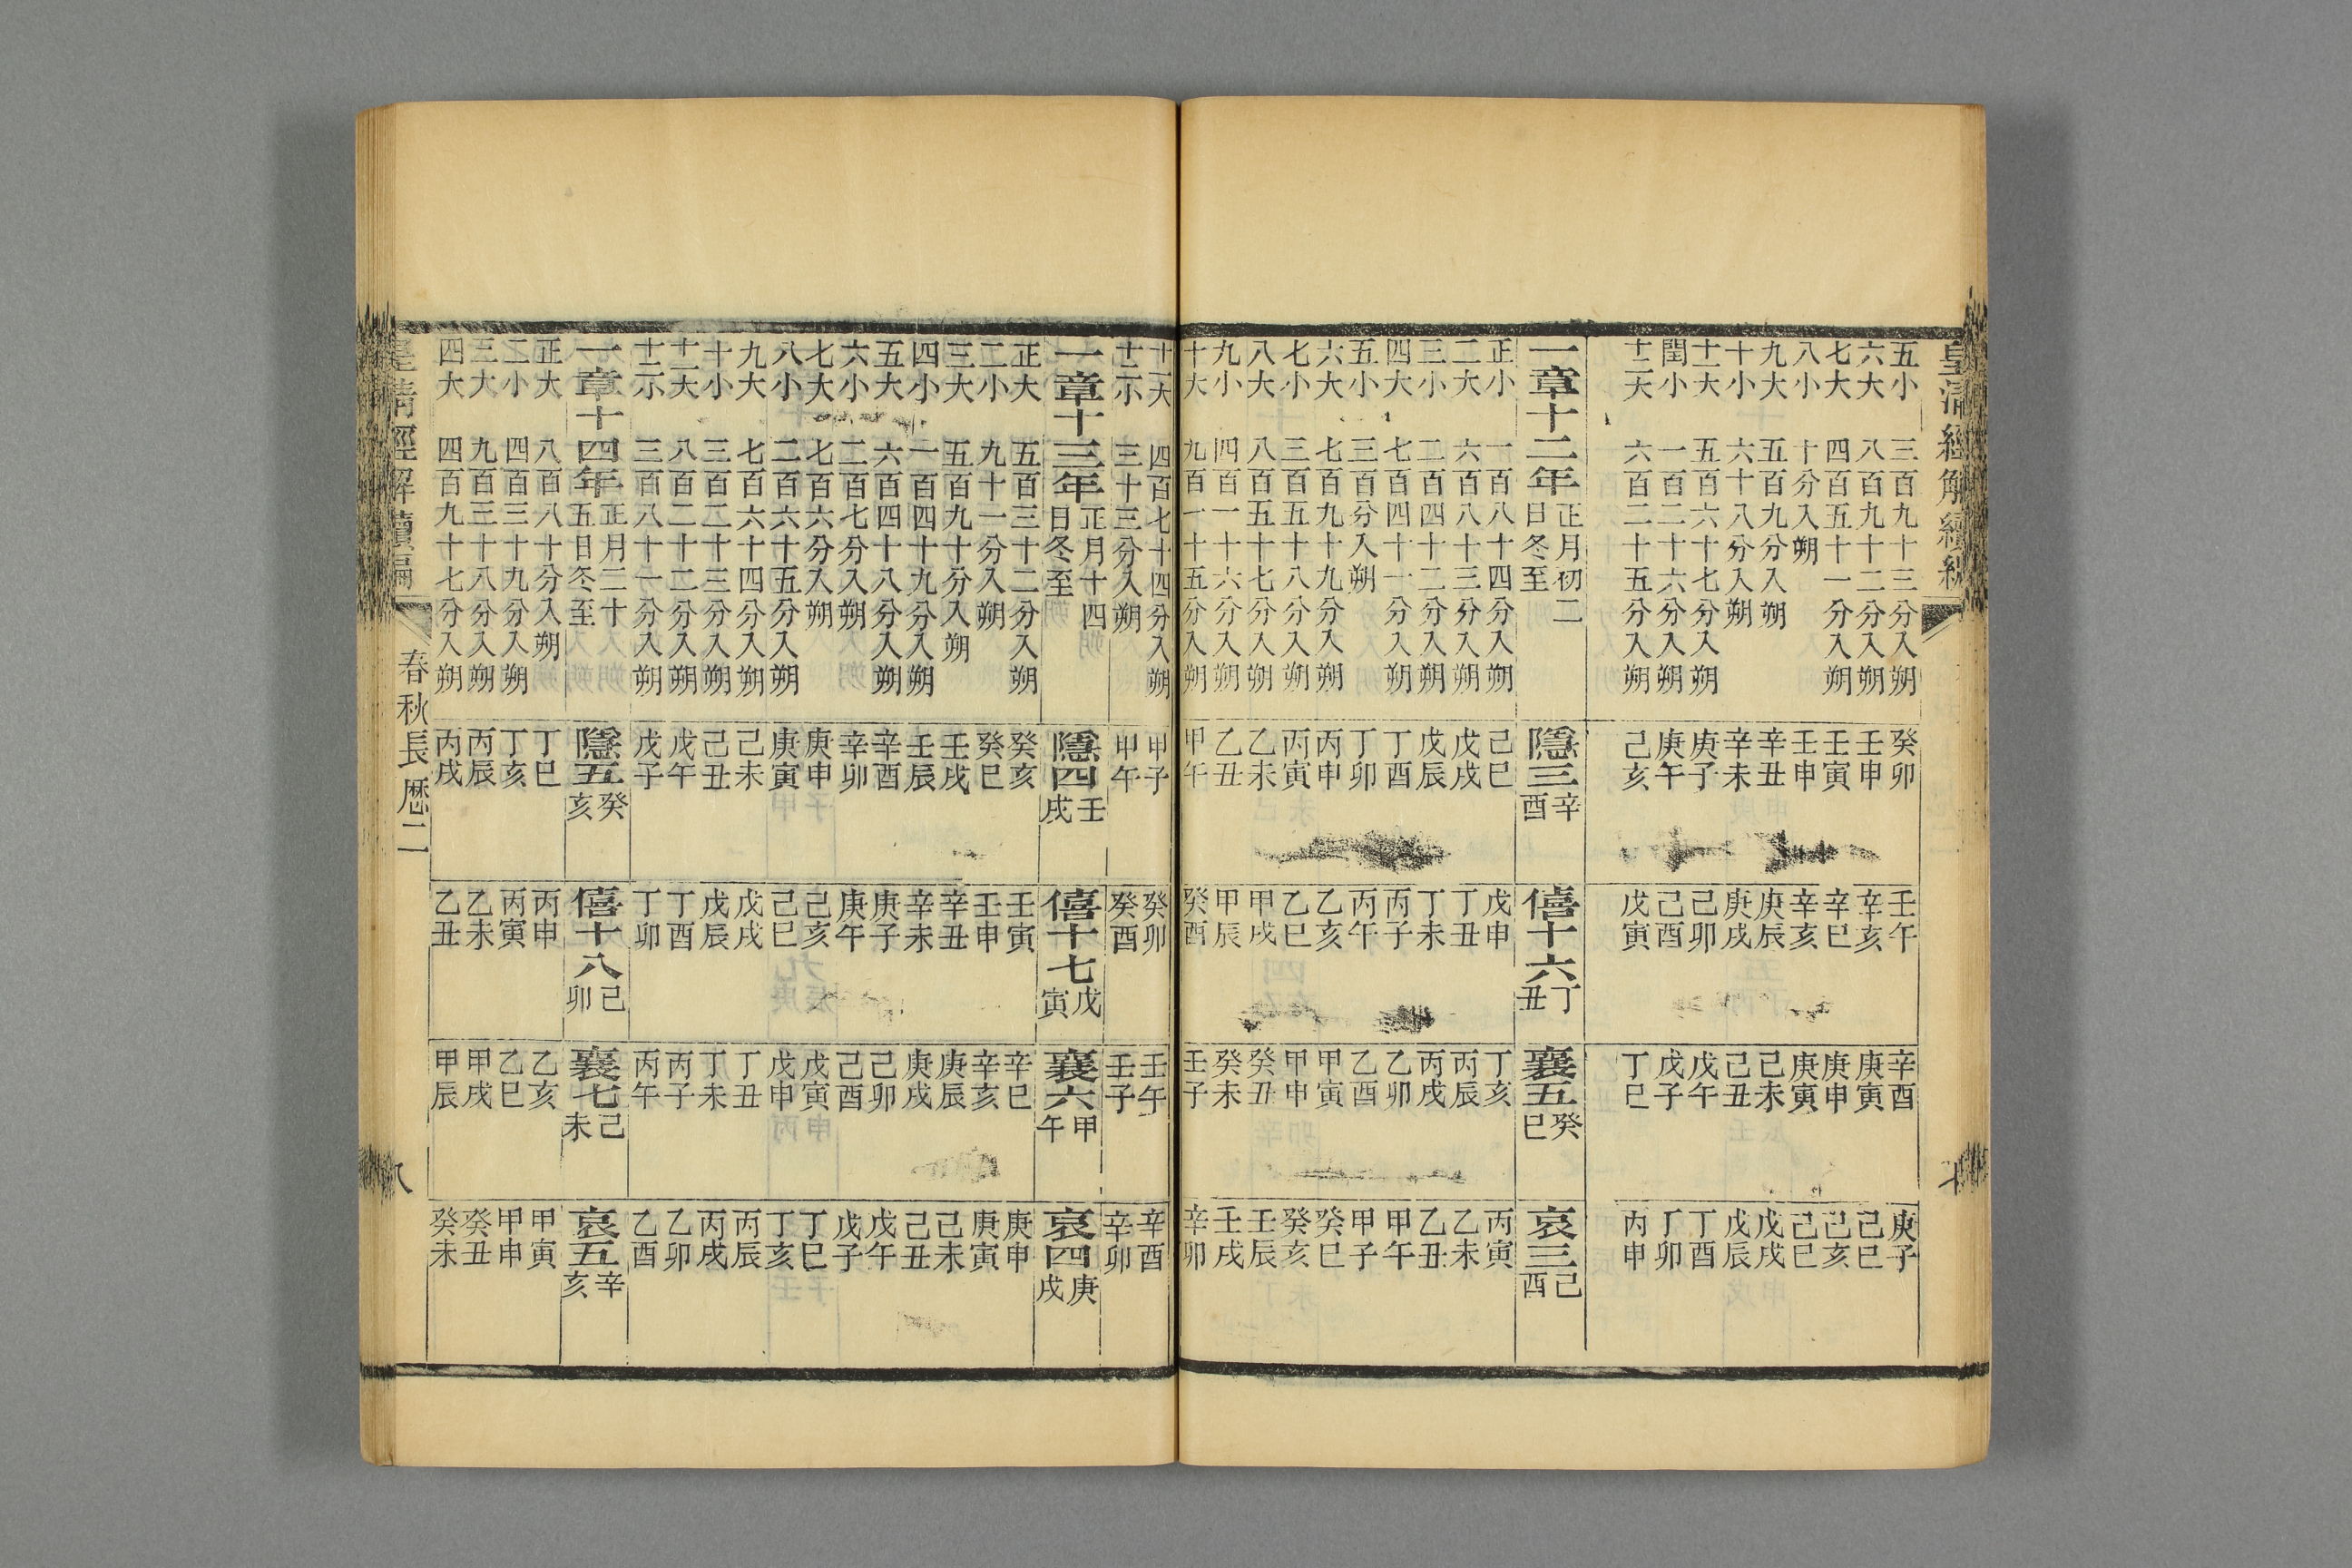 皇清經解續編 七
五小 三百九十三分入朔 癸卯 壬午 辛酉 庚子
六大 八百九十二分入朔 壬申 辛亥 庚寅 己巳
七大 四百五十一分入朔 壬寅 辛巳 庚申 己亥
八小 十分入朔 壬申 辛亥 庚寅 己巳
九大 五百九分入朔 辛丑 庚辰 己未 戊戌
十小 六十八分入朔 辛未 庚戌 己丑 戊辰
十一大 五百六十七分入朔 庚子 己卯 戊午 丁酉
閏小 一百二十六分入朔 庚午 己酉 戊子 丁卯
十二大 六百二十五分入朔 己亥 戊寅 丁巳 丙申
一章十二年 正月初二日冬至 隱三 辛酉 僖十六 丁丑 襄五 癸巳 哀三 己酉
正小 一百八十四分入朔 己巳 戊申 丁亥 丙寅
二大 六百八十三分入朔 戊戌 丁丑 丙辰 乙未
三小 二百四十二分入朔 戊辰 丁未 丙戌 乙丑
四大 七百四十一分入朔 丁酉 丙子 乙卯 甲午
五小 三百分入朔 丁卯 丙午 乙酉 甲子
六大 七百九十九分入朔 丙申 乙亥 甲寅 癸巳
七小 三百五十八分入朔 丙寅 乙巳 甲申 癸亥
八大 八百五十七分入朔 乙未 甲戌 癸丑 壬辰
九小 四百一十六分入朔 乙丑 甲辰 癸未 壬戌
十大 九百一十五分入朔 甲午 癸酉 壬子 辛卯
十一大 四百七十四分入朔 甲子 癸卯 壬午 辛酉
十二小 三十三分入朔 甲午 癸酉 壬子 辛卯
一章十三年 正月十四日冬至 隱四 壬戌 僖十七 戊寅 襄六 甲午 哀四 庚戌
正大 五百三十二分入朔 癸亥 壬寅 辛巳 庚申
二小 九十一分入朔 癸巳 壬申 辛亥 庚寅
三大 五百九十分入朔 壬戌 辛丑 庚辰 己未
四小 一百四十九分入朔 壬辰 辛未 庚戌 己丑
五大 六百四十八分入朔 辛酉 庚子 己卯 戊午
六小 二百七分入朔 辛卯 庚午 己酉 戊子
七大 七百六分入朔 庚申 己亥 戊寅 丁巳
八小 二百六十五分入朔 庚寅 己巳 戊申 丁亥
九大 七百六十四分入朔 己未 戊戌 丁丑 丙辰
十小 三百二十三分入朔 己丑 戊辰 丁未 丙戌
十一大 八百二十二分入朔 戊午 丁酉 丙子 乙卯
十二小 三百八十一分入朔 戊子 丁卯 丙午 乙酉
一章十四年 正月二十五日冬至 隱五 癸亥 僖十八 己卯 襄七 己未 哀五 辛亥
正大 八百八十分入朔 丁巳 丙申 乙亥 甲寅
二小 四百三十九分入朔 丁亥 丙寅 乙巳 甲申
三大 九百三十八分入朔 丙辰 乙未 甲戌 癸丑
四大 四百九十七分入朔 丙戌 乙丑 甲辰 癸未
皇清經解續編 春秋長厤二 八